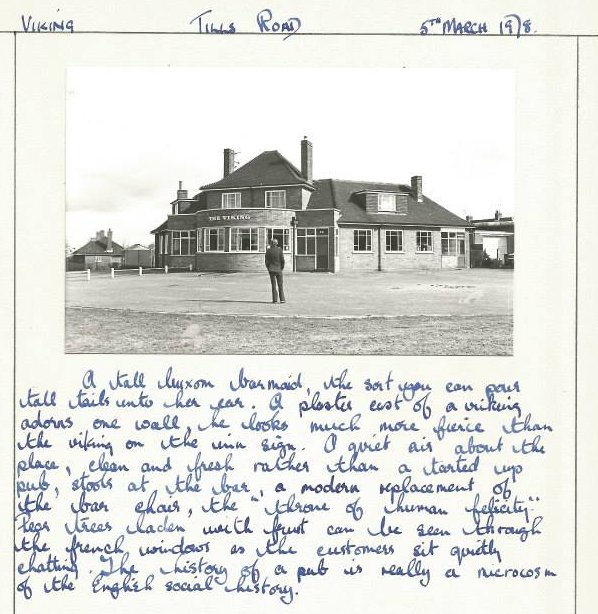 VIKING TILLS ROAD 5TH MARCH 1978.
THE VIKING
A tall buxom barmaid, the sort you can pour
tall tails unto her ear. A plaster cast of a viking
adorns one wall, he looks much more fierce than
the viking on the inn sign. A quiet air about the
place, clean and fresh rather than a tarted up
pub, stools at the bar, a modern replacement of
the bar chair, the "throne of human felicity".
Pear trees laden with fruit can be seen through
the french windows as the customers sit quietly
chatting. The history of a pub is really a microcosm
of the English social history.